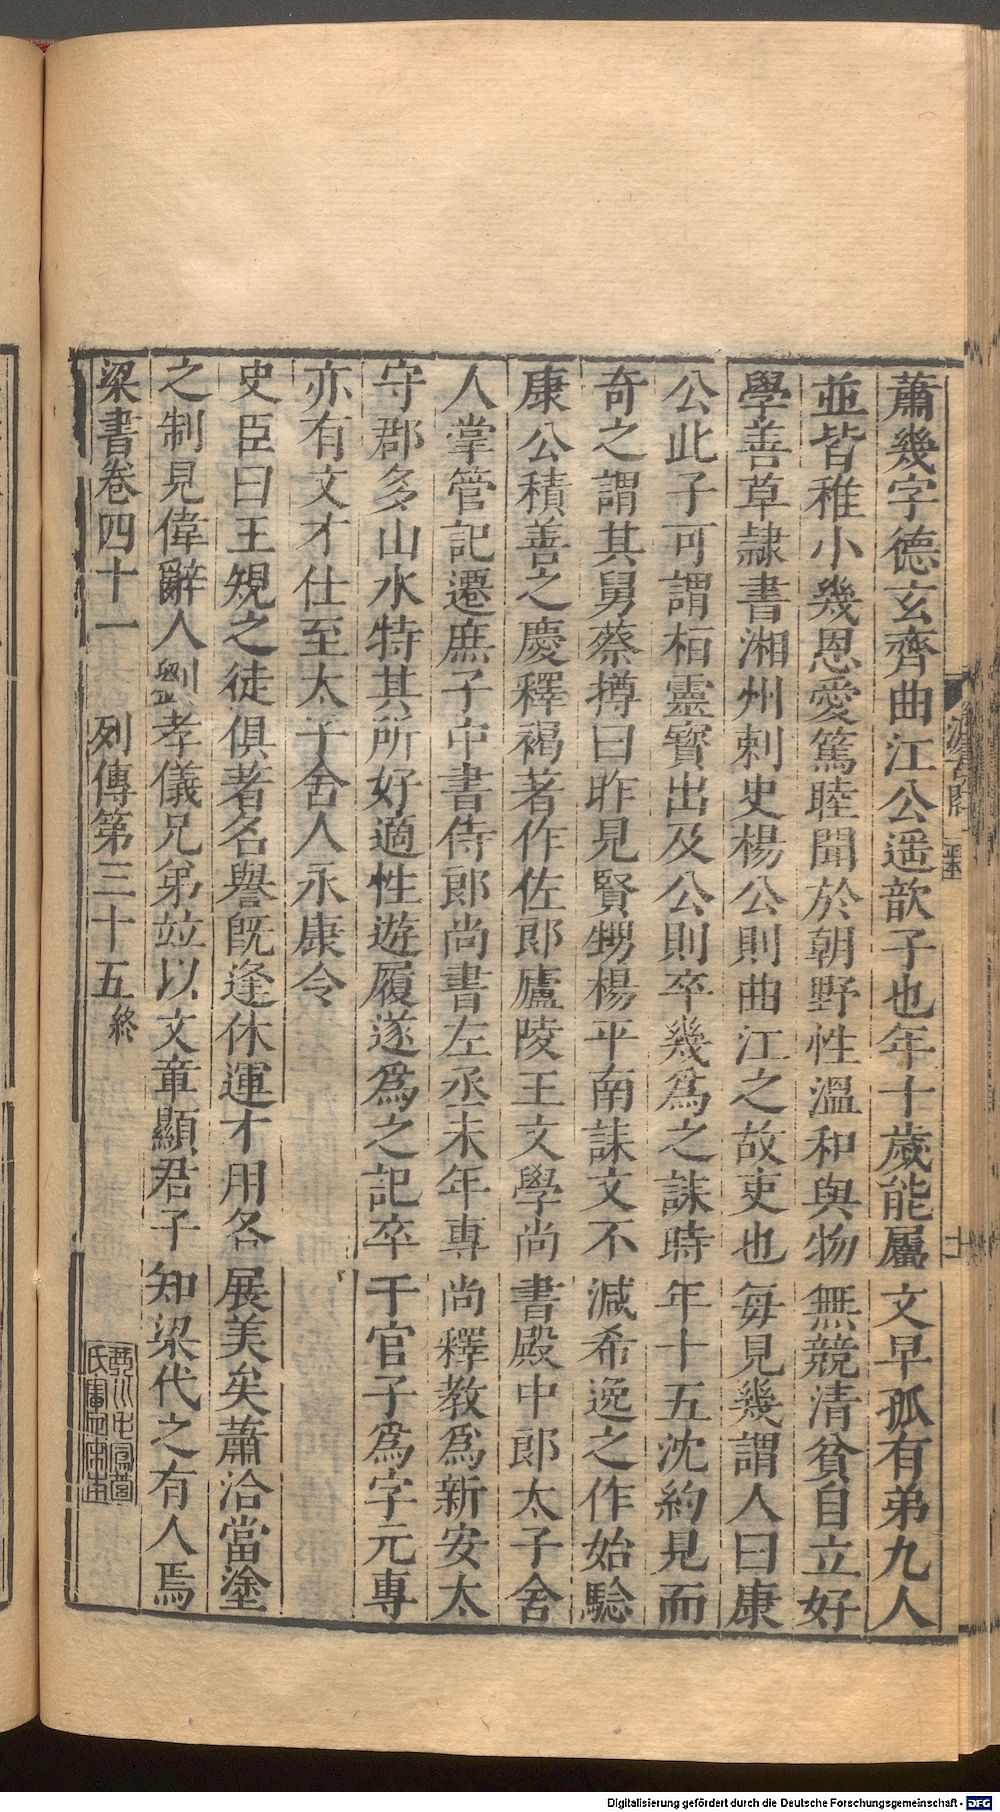 蕭幾字德玄齊曲江公遥歆子也年十歲能屬文早孤有弟九人
並皆稚小幾恩愛篤睦聞於朝野性溫和與物無競清貧自立好
學善草隷書湘州刺史楊公則曲江之故吏也每見幾謂人曰康
公此子可謂栢靈寶出及公則卒幾爲之誄時年十五沈約見而
奇之謂其舅蔡撙曰昨見賢甥楊平南誄文不減希逸之作始驗
康公積善之慶釋褐著作佐郎廬陵王文學尚書殿中郎太子舍
人掌管記遷庶子中書侍郎尚書左丞末年專尚釋教爲新安太
守郡多山水特其所好適性遊履遂爲之記卒于官子爲字元專
亦有文才仕至太子舍人永康令
史臣曰王規之徒俱著名譽旣逢休運才用各展美矣蕭洽當塗
之制見偉辭人劉孝儀兄弟竝以文章顯君子知梁代之有人焉
梁書卷四十一 列傳第三十五終
汲古閣
十
Digitalisierung gefördert durch die Deutsche Forschungsgemeinschaft - DFG